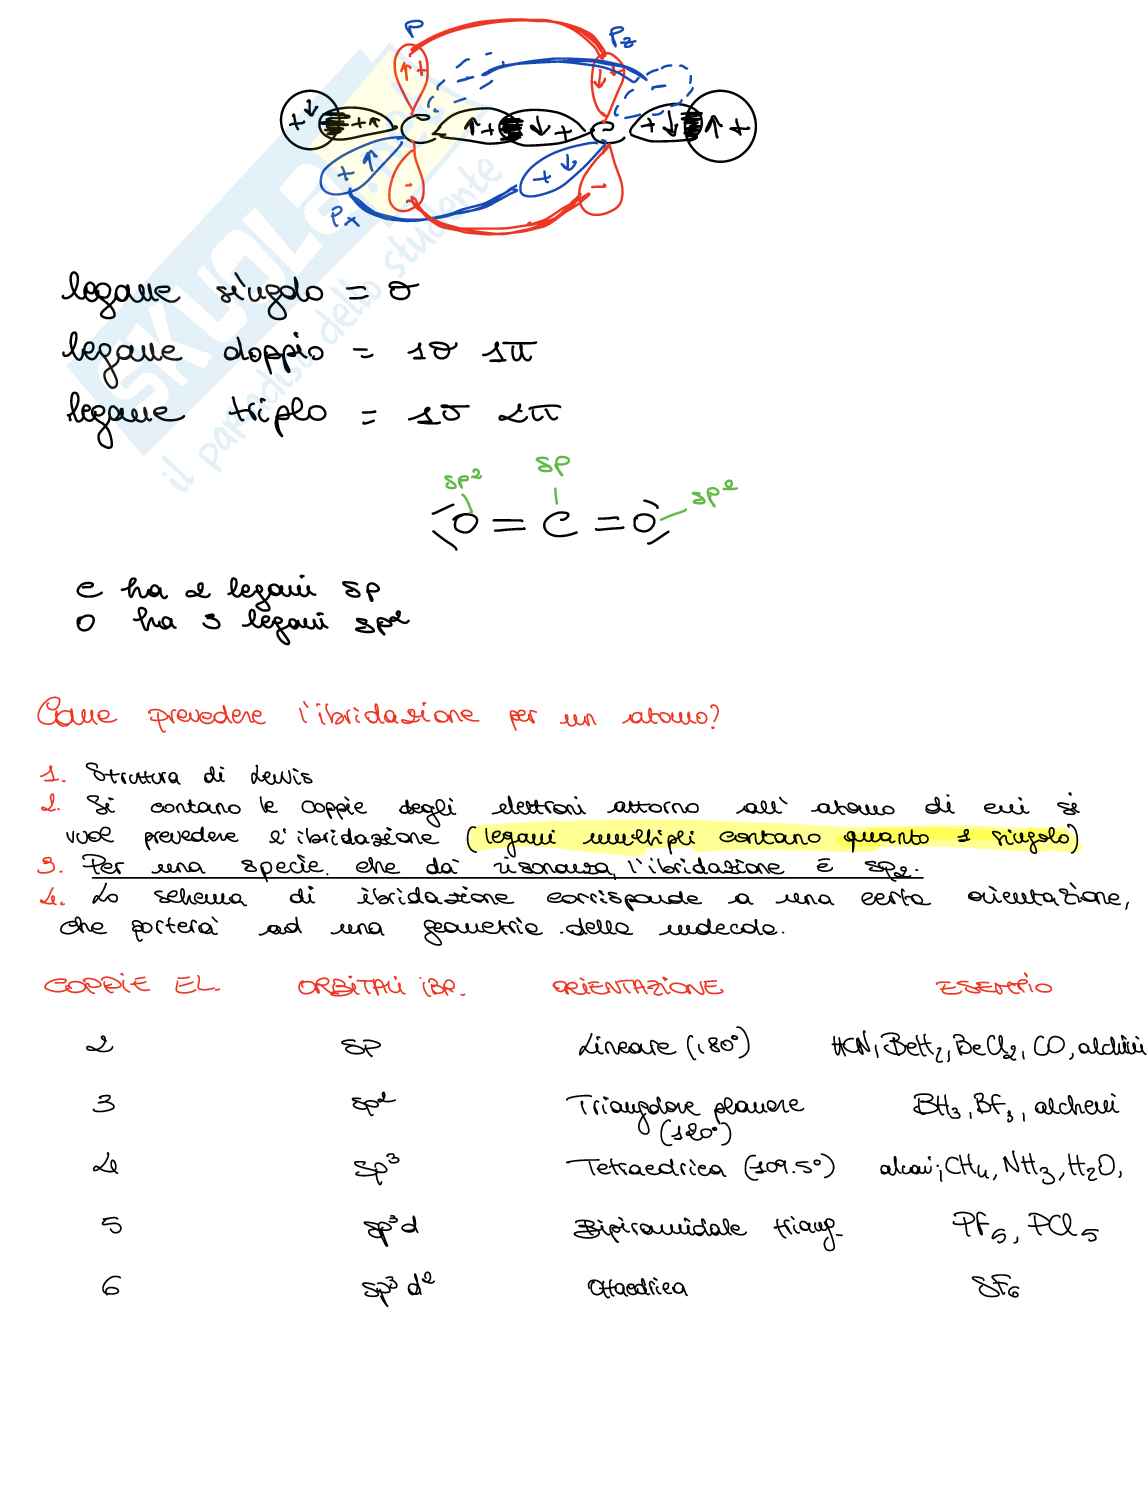 P
Pz
Px
SKUOLA.NET
il paradiso dello studente
legame singolo = σ
legame doppio = 1σ 1π
legame triplo = 1σ 2π
sp² sp sp²
O = C = O
C ha 2 legami sp
O ha 3 legami sp²
Come prevedere l'ibridazione per un atomo?
1. Struttura di Lewis
2. Si contano le coppie degli elettroni attorno all' atomo di cui si
vuol prevedere l'ibridazione (legami multipli contano quanto 1 singolo)
3. Per una specie che da' risonanza, l'ibridazione È sp2.
4. Lo schema di ibridazione corrisponde a una certa orientazione,
che porterà ad una geometria della molecola.
COPPIE EL. ORBITALI IBR. ORIENTAZIONE ESEMPIO
2 sp Lineare (180°) HCN, BeH₂, BeCl₂, CO, alchini
3 sp² Triangolare planare (120°) BH₃, BF₃, alcheni
4 sp³ Tetraedrica (109.5°) alcani; CH₄, NH₃, H₂O,
5 sp³d Bipiramidale triang. PF₅, PCl₅
6 sp³d² Ottaedrica SF₆